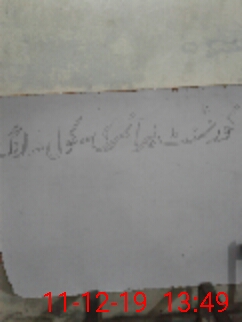 گورنمنٹ پرائمری سکول
11-12-19 13.49